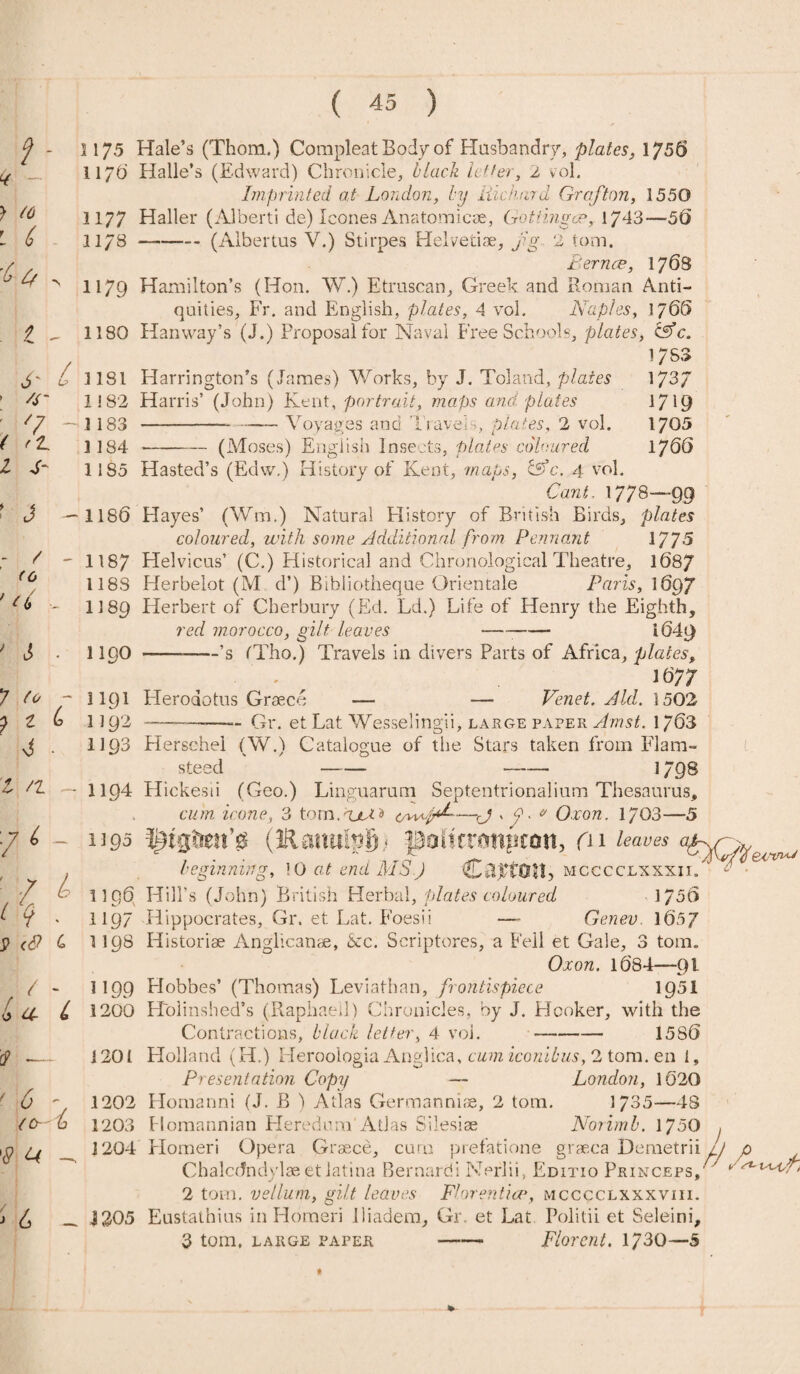 ( 45 )
1175 Hale's (Thom.) Compleat Body of Husbandry, plates, 1756
1176 Halle's (Edward) Chronicle, black letter, 2 vol.
Imprinted at London, by Richard Grafton, 1550
1177 Haller (Alberti de) Icones Anatomicæ, Gottingæ, 1743—56
1178 ——— (Albertus V.) Stirpes Helvetiæ, fig. 2 tom.
Bernæ, 1768
1179 Hamilton's (Hon. W.) Etruscan, Greek and Roman Anti-
quities, Fr. and English, plates, 4 vol. Naples, 1766
1180 Hanway's (J.) Proposal for Naval Free Schools, plates, &c.
1783
1181 Harrington's (James) Works, by J. Toland, plates 1737
1182 Harris' (John) Kent, portrait, maps and plates 1719
1183 ——— Voyages and Travels, plates, 2 vol. 1705
1184 ——— (Moses) English Insects, plates coloured 1766
1185 Hasted's (Edw.) History of Kent, maps, &c. 4 vol.
Cant. 1778—99
1186 Hayes' (Wm.) Natural History of British Birds, plates
coloured, with some Additional from Pennant 1775
1187 Helvicus' (C.) Historical and Chronological Theatre, 1687
1188 Herbelot (M. d') Bibliotheque Orientale Paris, 1697
1189 Herbert of Cherbury (Ed. Ld.) Life of Henry the Eighth,
red morocco, gilt leaves ——— 1649
1190 ———'s (Tho.) Travels in divers Parts of Africa, plates,
1677
1191 Herodotus Græcé — — Venet. Ald. 1502
1192 ——— Gr. et Lat Wesselingii, LARGE PAPER Amst. 1763
1193 Herschel (W.) Catalogue of the Stars taken from Flam-
steed ——— ——— 1798
1194 Hickesii (Geo.) Linguarum Septentrionalium Thesaurus,
cum icone, 3 tom. Oxon. 1703—5
1195 Higden's (Ranulph) Policronpcon, (11 leaves at
beginning, 10 at end MS.) Caxton, MCCCCLXXXII.
1196 Hill's (John) British Herbal, plates coloured 1756
1197 Hippocrates, Gr. et Lat. Foesii — Genev. 1657
1198 Historiæ Anglicanæ, &c. Scriptores, a Fell et Gale, 3 tom.
Oxon. 1684—91
1199 Hobbes' (Thomas) Leviathan, frontispiece 1951
1200 Holinshed's (Raphaell) Chronicles, by J. Hooker, with the
Contractions, black letter, 4 vol. ——— 1586
1201 Holland (H.) Heroologia Anglica, cum iconibus, 2 tom. en 1,
Presentation Copy — London, 1620
1202 Homanni (J. B ) Atlas Germanniæ, 2 tom. 1735—48
1203 Homannian Heredum Atlas Silesiæ Norimb. 1750
1204 Homeri Opera Græcè, cum prefatione græca Demetrii
Chalcondylæ et latina Bernardi Nerlii, EDITIO PRINCEPS,
2 tom. vellum, gilt leaves Florentiæ, MCCCCLXXXVIII.
1205 Eustathius in Homeri Iliadem, Gr. et Lat. Politii et Seleini,
3 tom, LARGE PAPER ——— Florent. 1730—5